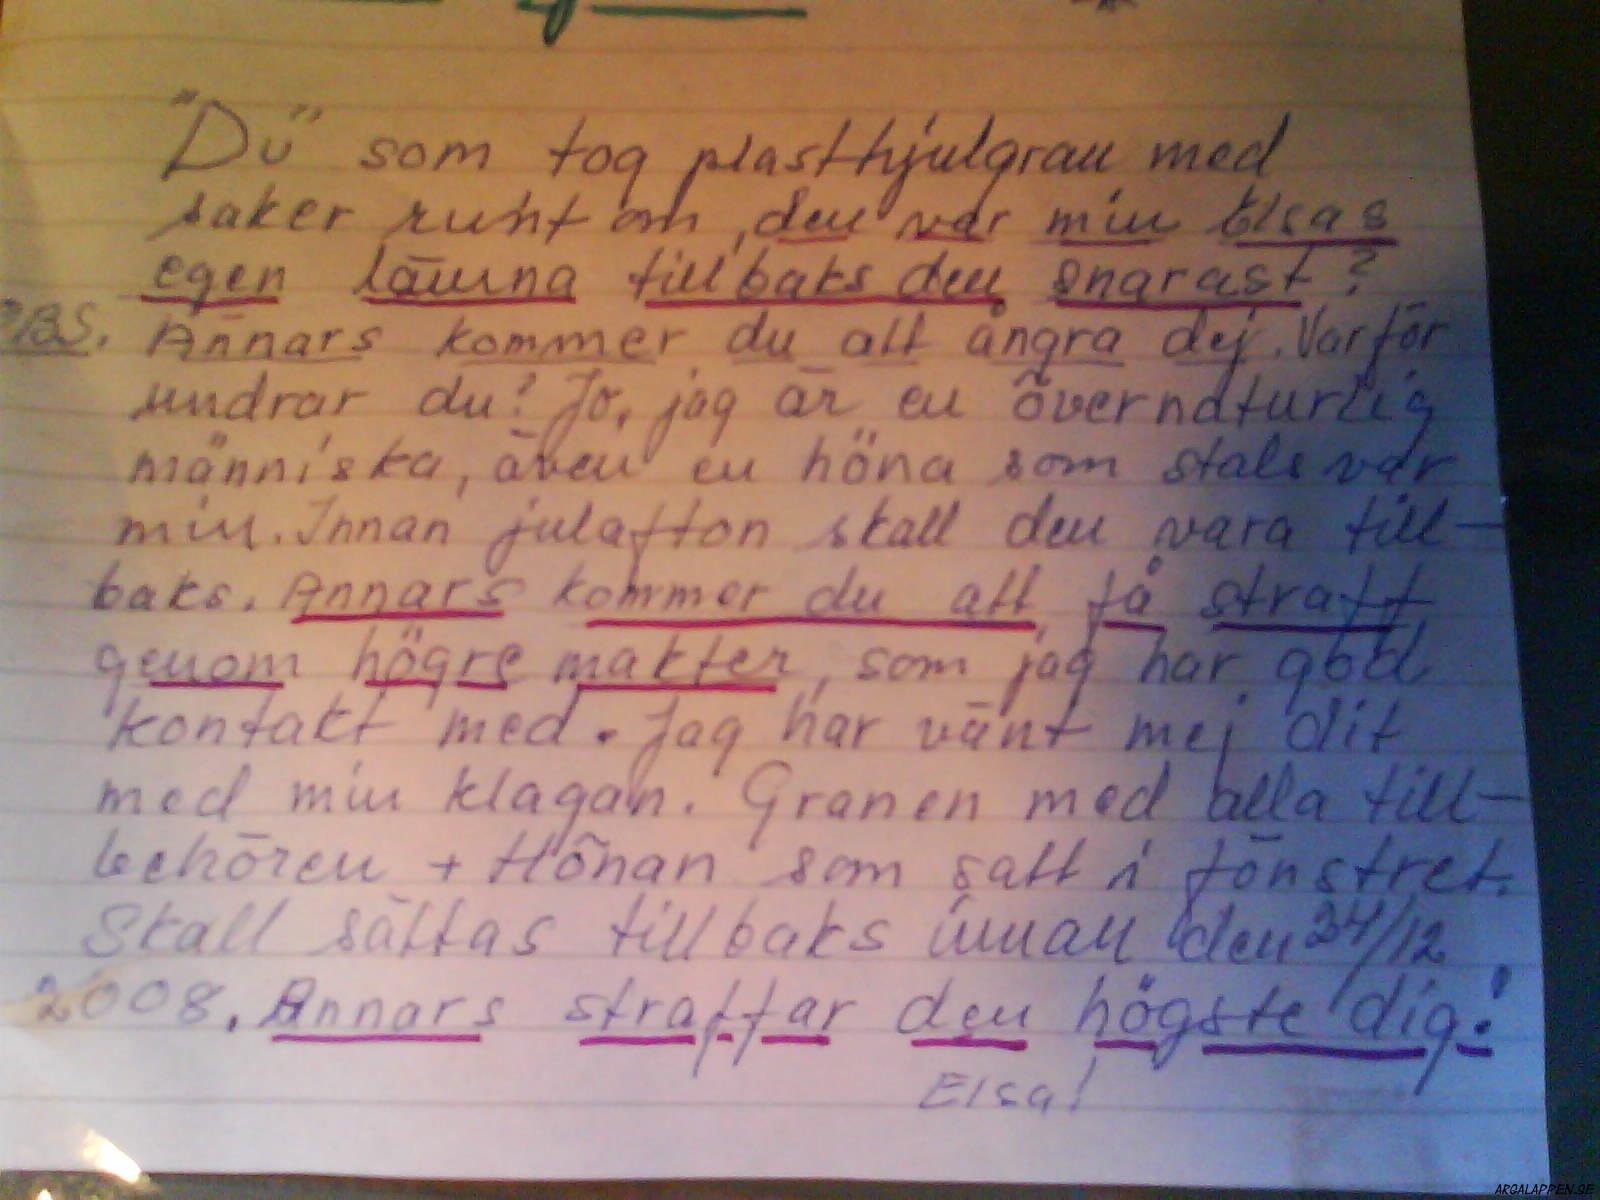 "Du" som tog plasthjulgran med
saker runt om, den var min Elsas
egen lämna tillbaks den snarast?
OBS. Annars kommer du att ångra dej. Varför
undrar du? Jo, jag är en övernaturlig
människa, även en höna som stals var
min. Innan julafton skall den vara till-
baks. Annars kommer du att få straff
genom högre makter, som jag har god
kontakt med. Jag har vänt mej dit
med min klagan. Granen med alla till-
behören + Hönan som satt i fönstret.
Skall sättas tillbaks innan den 24/12
2008. Annars straffar den högste dig!
Elsa!
ARGALAPPEN.SE